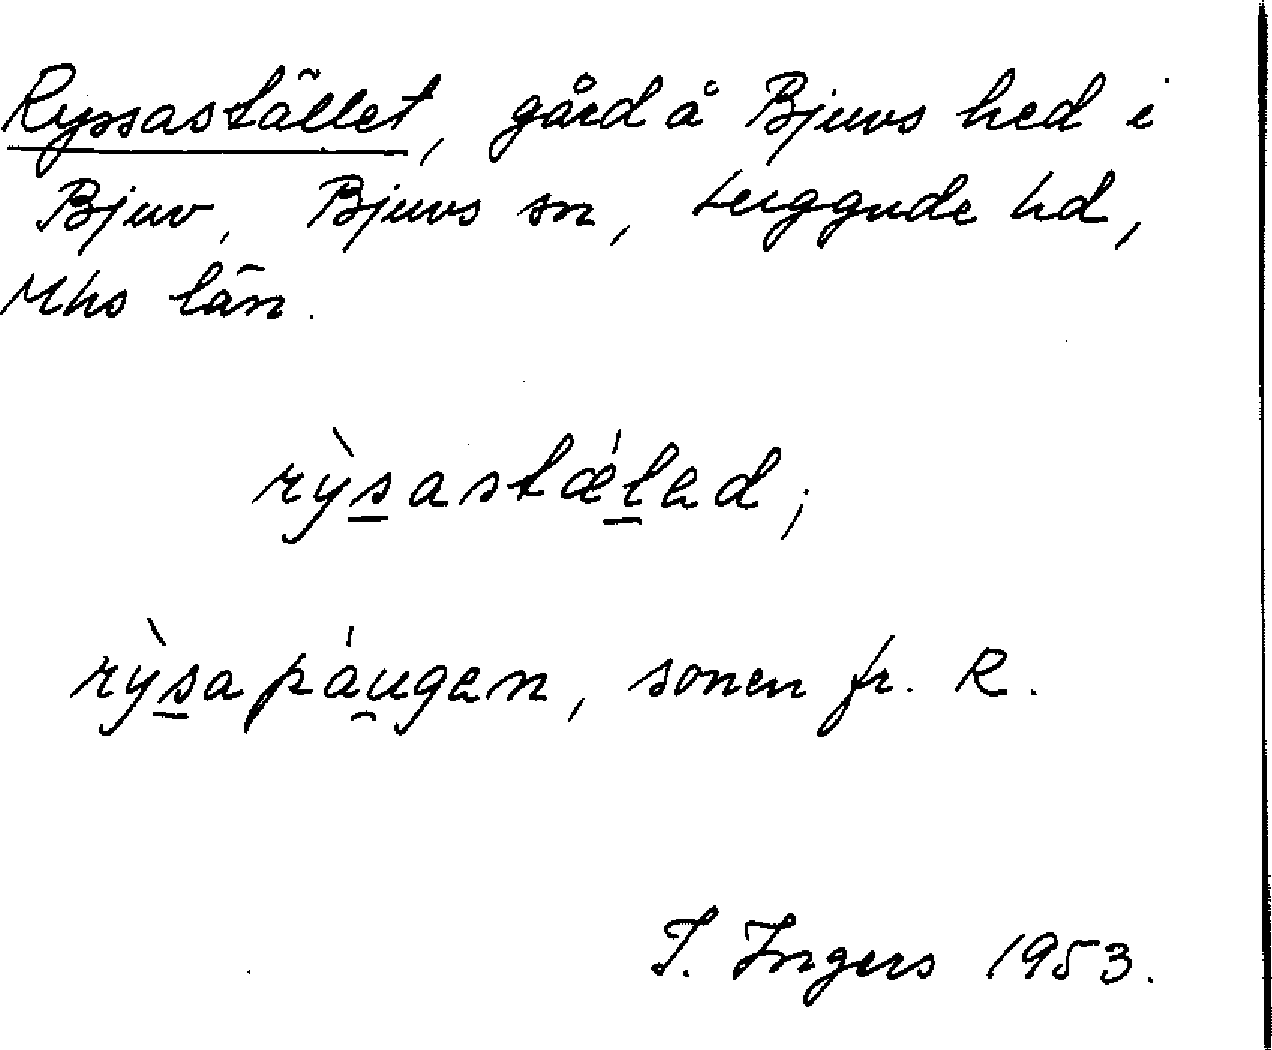 Ryssastället, gård å Bjuvs hed i
Bjuv, Bjuvs sn, Luggude hd,
Mhs län.
rỳsastǽled;
rỳsapáugen, sonen fr. R.
I. Ingers 1953.